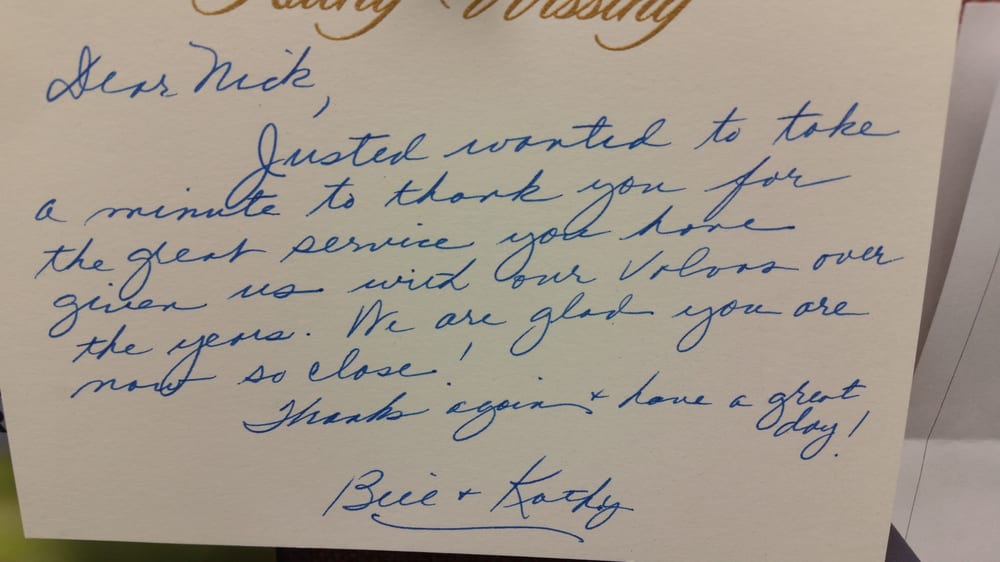 Kathy Wissing
Dear Nick,
Justed wanted to take
a minute to thank you for
the great service you have
given us with our Volvos over
the years. We are glad you are
now so close!
Thanks again + have a great
day!
Bill + Kathy